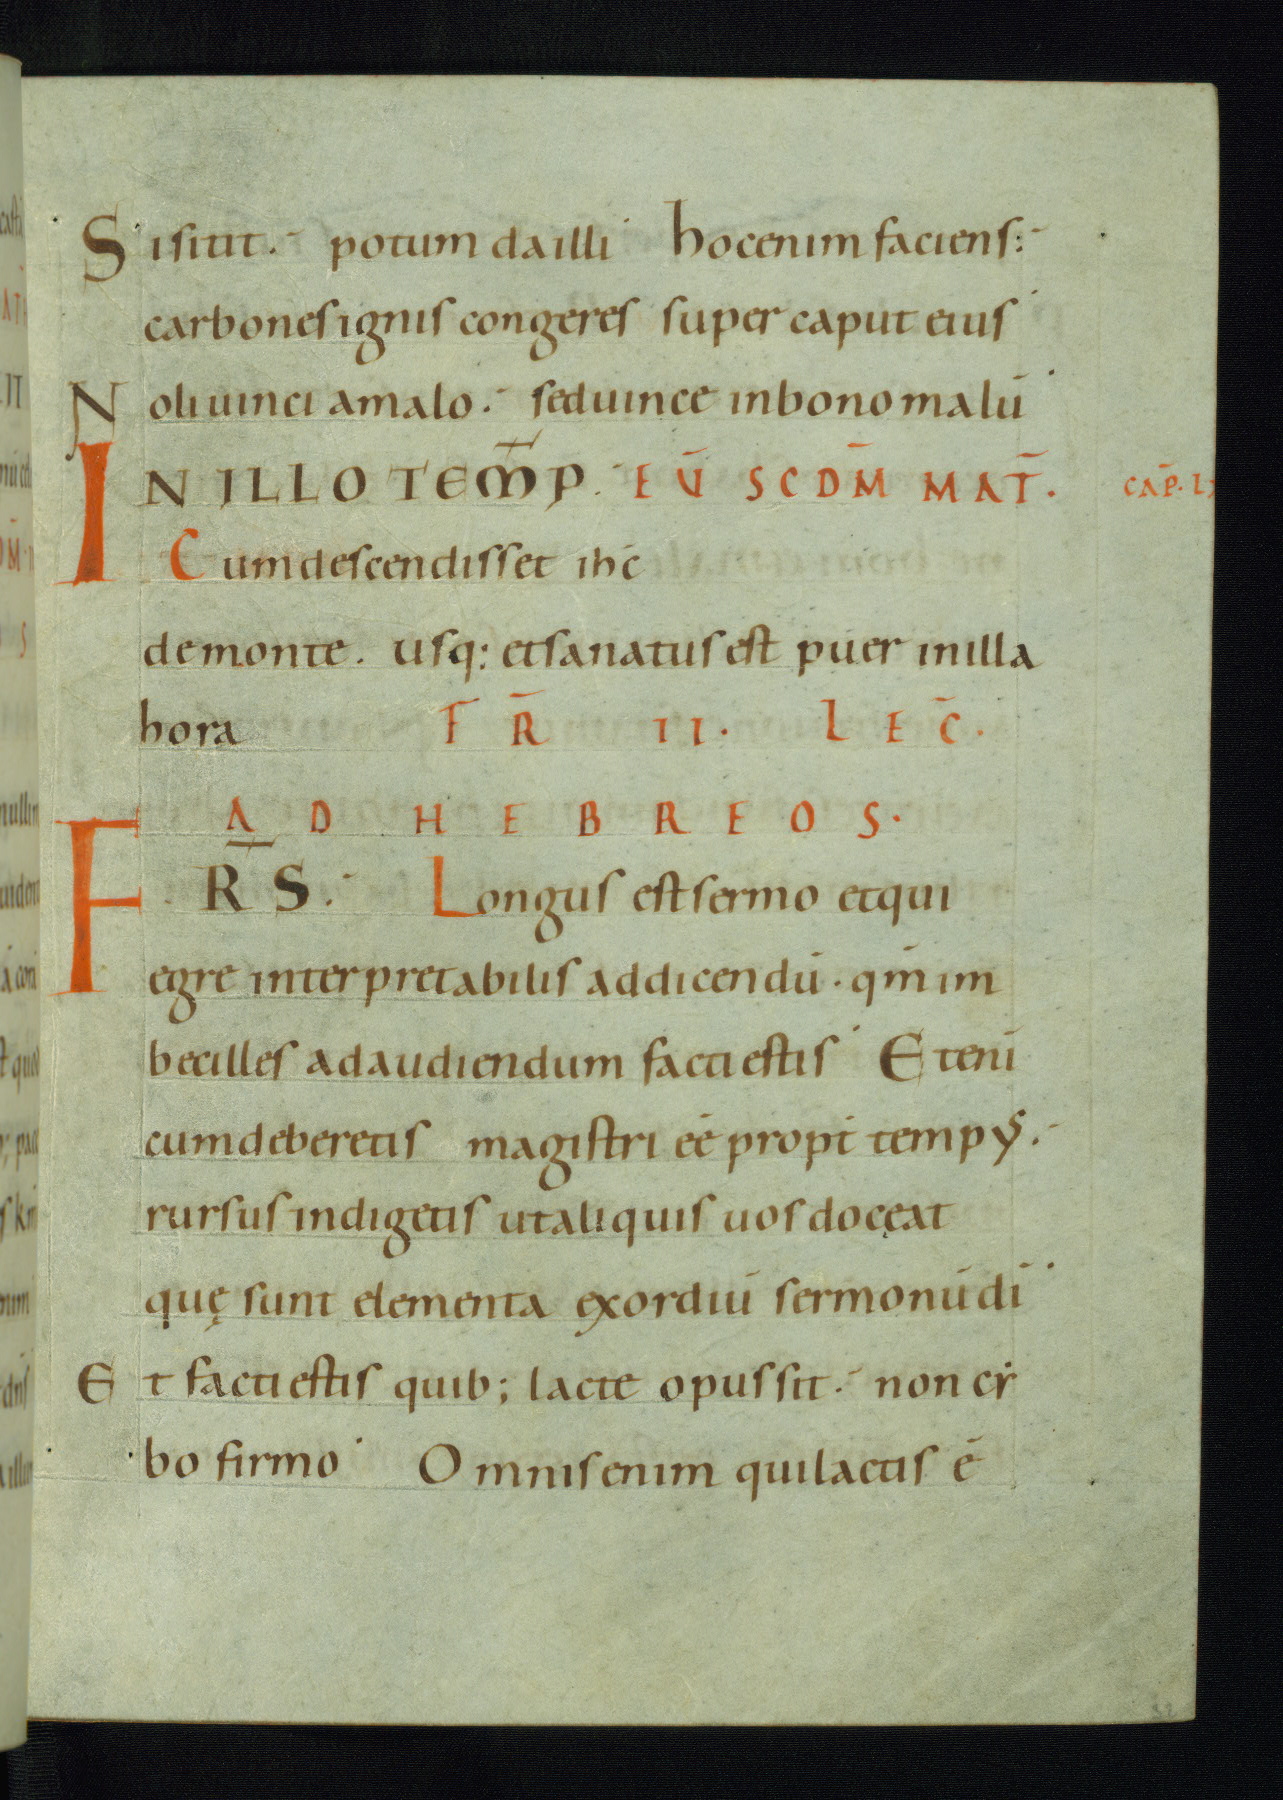 Sisitit. potum da illi hoc enim faciens:
carbones ignis congeres super caput eius
Noli uinci a malo. sed uince in bono malū
IN ILLO TEM̄P. EŪ SCDM̄ MAT̄. CAP̄.
Cum descendisset ihc̄
de monte. usq: et sanatus est puer in illa
hora FR̄ II. LEC̄.
AD HEBREOS.
FR̄S. Longus est sermo et qui
egre interpretabilis ad dicendū. qm̄ im
becilles ad audiendum facti estis Etenī
cum deberetis magistri eē propt̄ tempꝰ.
rursus indigetis ut aliquis uos docęat
quę sunt elementa exordiū sermonū dī
Et facti estis quib; lacte opus sit. non cy
bo firmo Omnis enim qui lactis ē